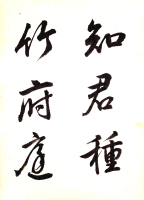 知君種
竹府庭